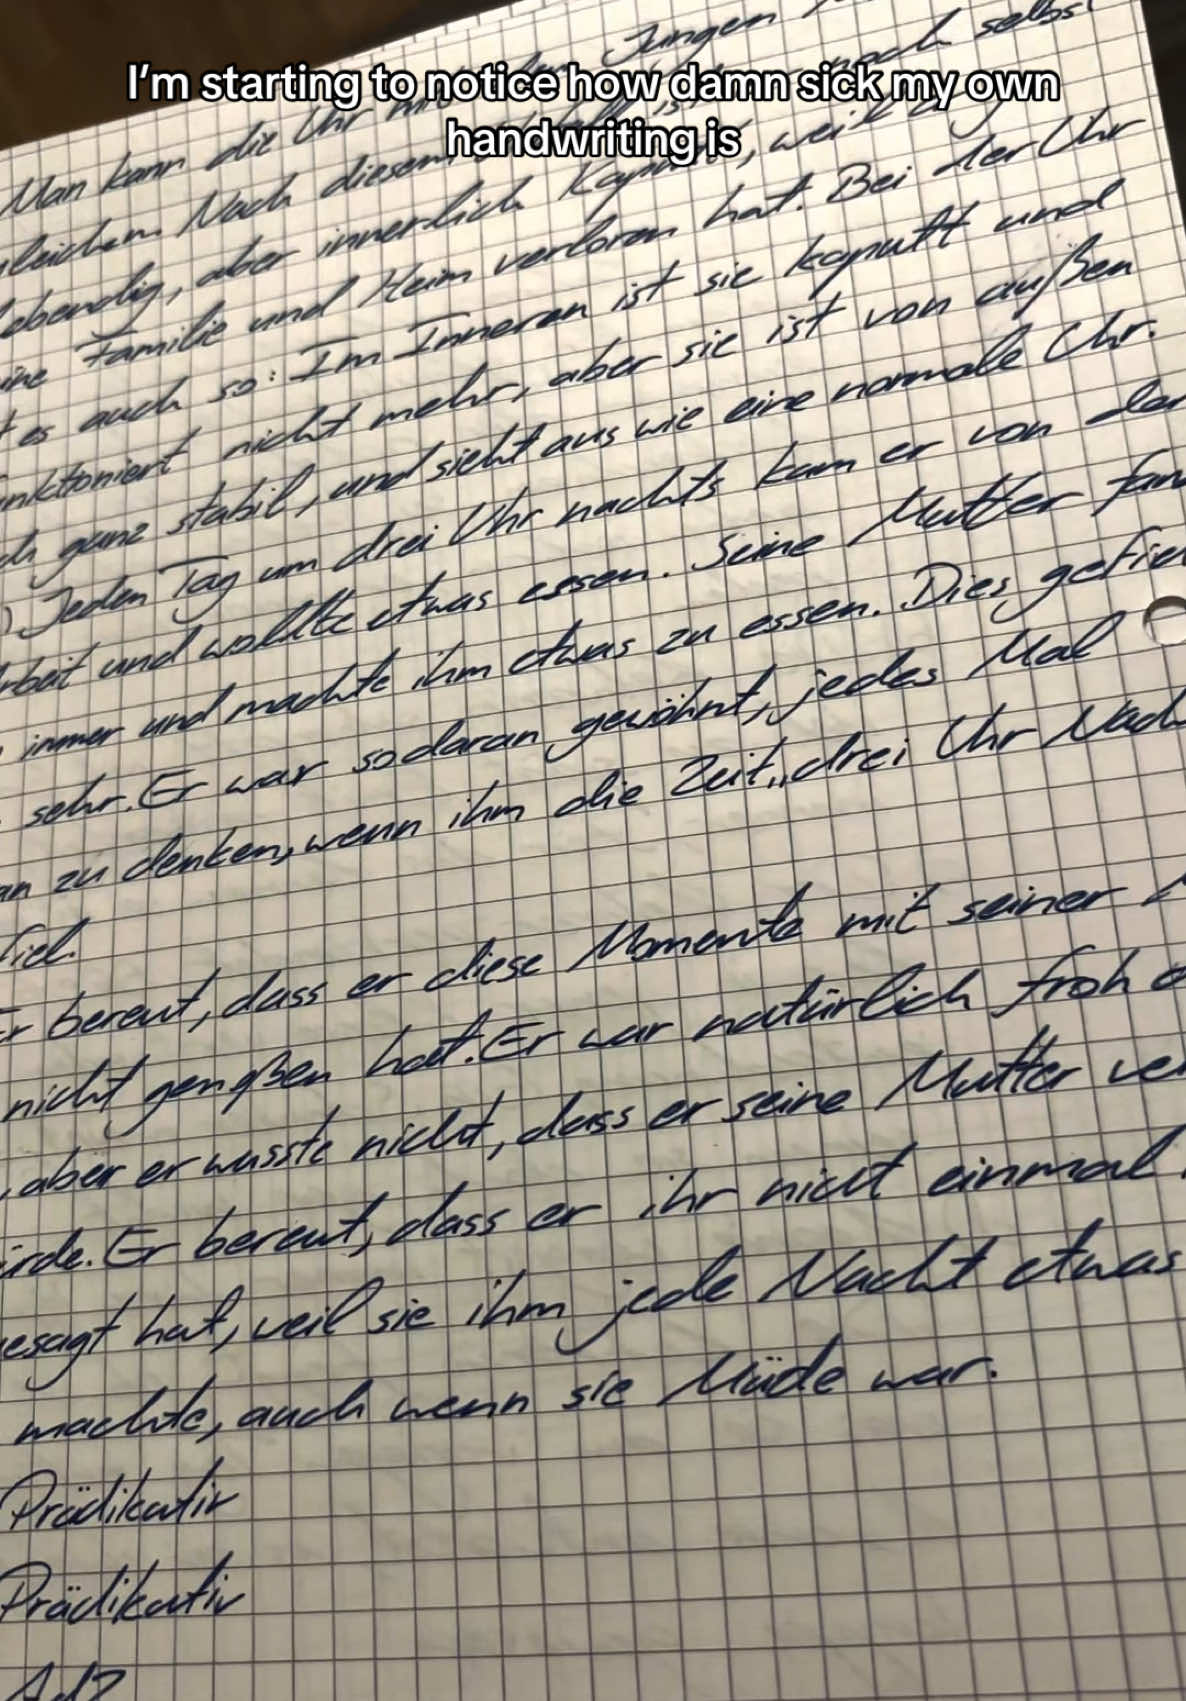 I'm starting to notice how damn sick my own
handwriting is
Jungen
Man kann die Uhr mit
gleichen. Nach diesem ist noch selbst
lebendig, aber innerlich kaputt, weil
eine Familie und Heim verloren hat. Bei der Uhr
t es auch so: Im Inneren ist sie kaputt und
unktioniert nicht mehr, aber sie ist von außen
ch ganz stabil, und sieht aus wie eine normale Uhr.
) Jeden Tag um drei Uhr nachts kam er von der
rbeit und wollte etwas essen. Seine Mutter fan
immer und machte ihm etwas zu essen. Dies gefiel
sehr. Er war so daran gewöhnt, jedes Mal
an zu denken, wenn ihm die Zeit „drei Uhr Nach
fiel.
Er bereut, dass er diese Momente mit seiner
nicht genoßen hat. Er war natürlich froh
, aber er wusste nicht, dass er seine Mutter ver
ürde. Er bereut, dass er ihr nicht einmal
esagt hat, weil sie ihm jede Nacht etwas
machte, auch wenn sie Müde war.
Prädikativ
Prädikativ